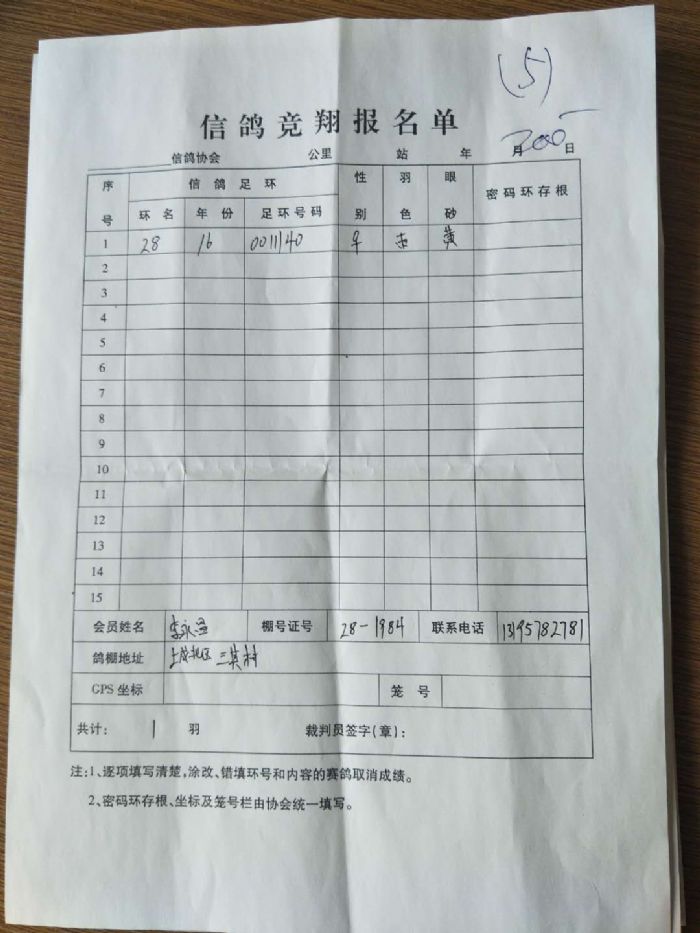 (5)
信鸽竞翔报名单
200
信鸽协会 公里 站 年 月 日
序号 信鸽足环 性别 羽色 眼砂 密码环存根
环名 年份 足环号码
1 28 16 0011140 黄
2
3
4
5
6
7
8
9
10
11
12
13
14
15
会员姓名 棚号证号 28-1984 联系电话 13195782781
鸽棚地址 三英村
GPS坐标 笼号
共计: 1 羽 裁判员签字(章):
注:1、逐项填写清楚,涂改、错填环号和内容的赛鸽取消成绩。
2、密码环存根、坐标及笼号栏由协会统一填写。